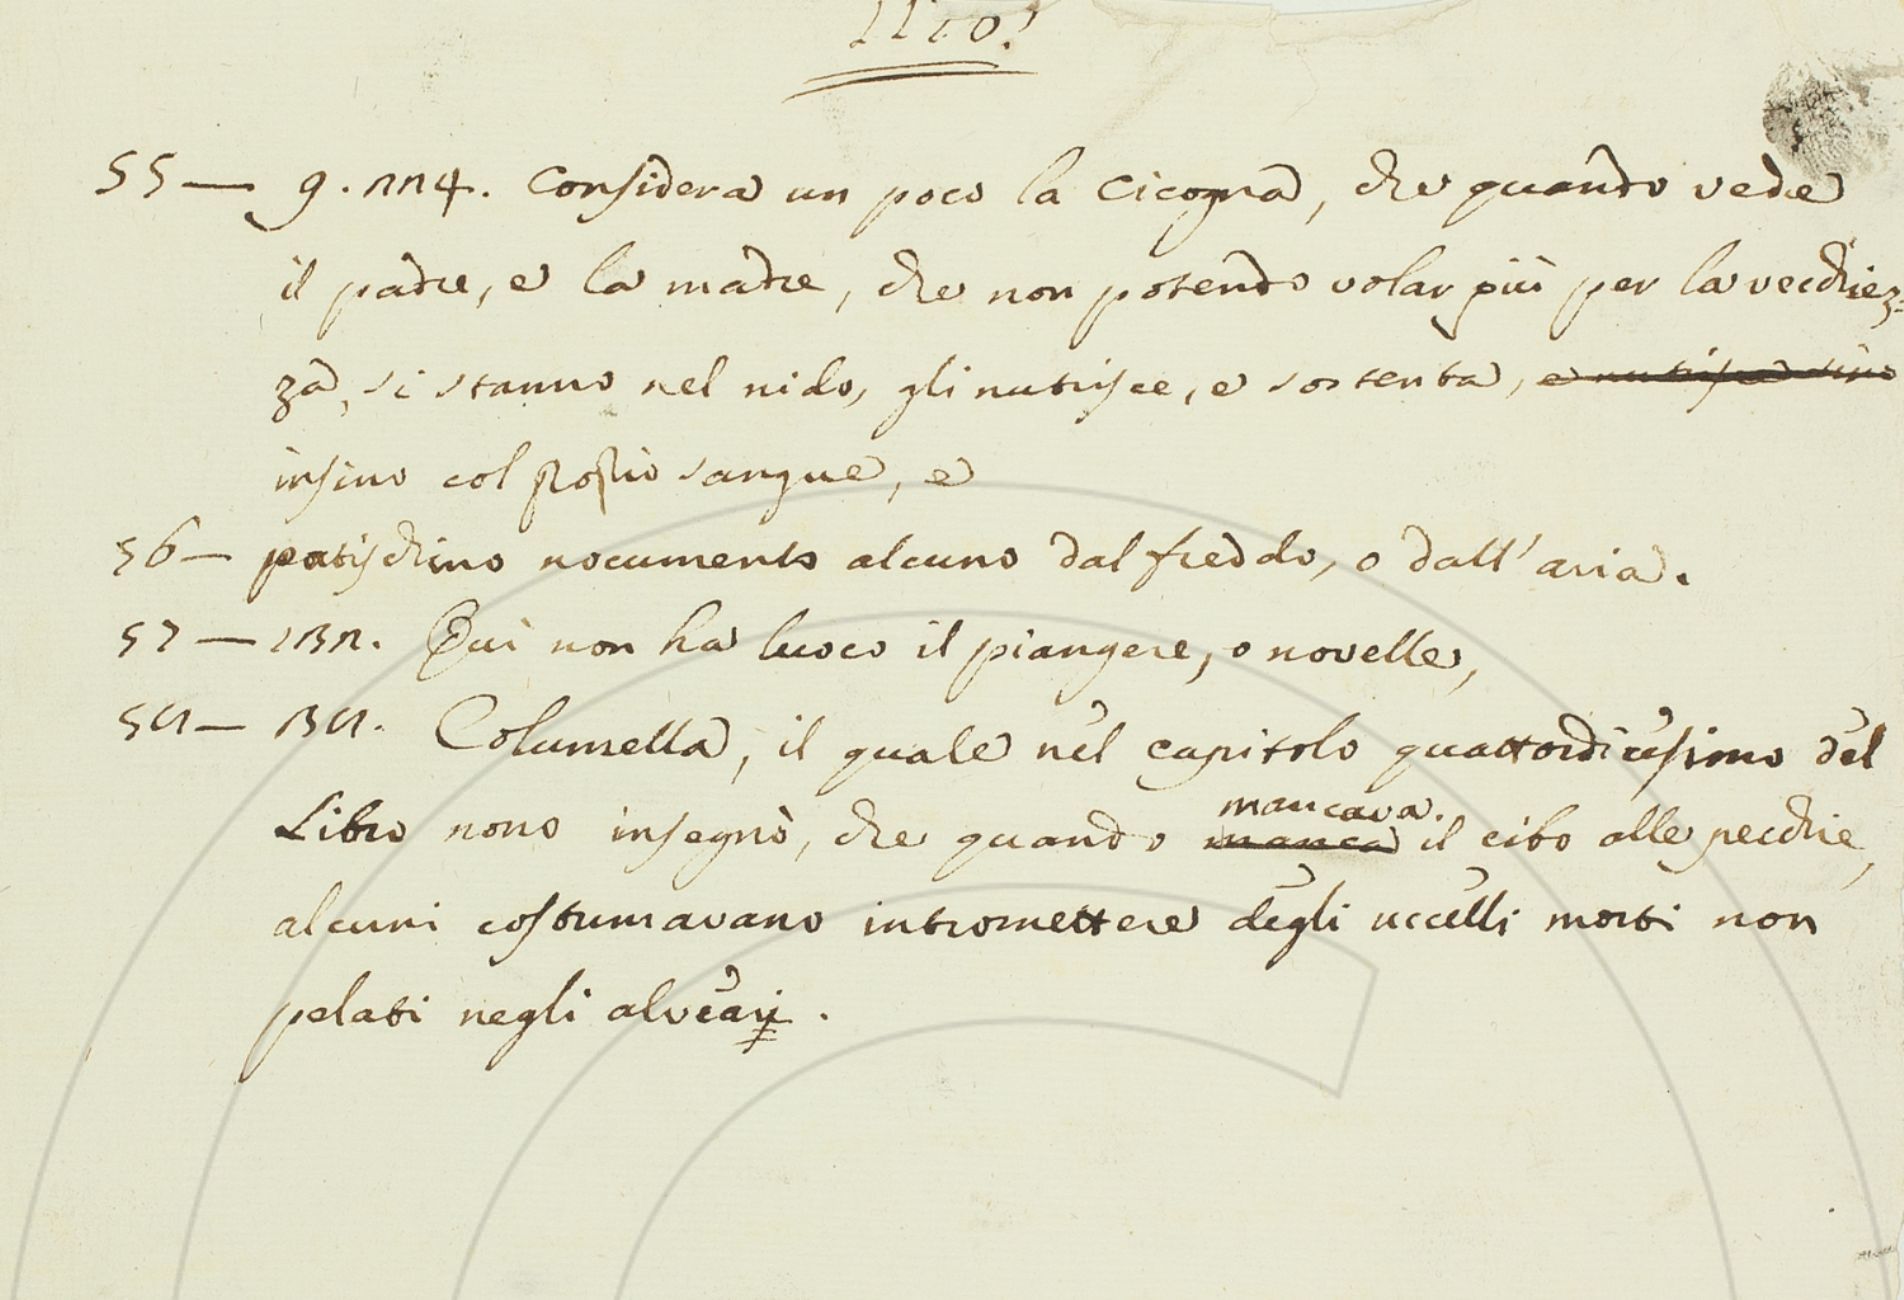 55 — g. 114. Considera un poco la Cicogna, che quando vede
il padre, e la madre, che non potendo volar più per la vecchiez-
za, si stanno nel nido, gli nutrisce, e sostenta,
insino col proprio sangue, e
56 — patischino nocumento alcuno dal freddo, o dall'aria.
57 — Qui non ha luoco il piangere, o novelle,
Columella, il quale nel capitolo quattordicesimo del
mancava.
Libro nono insegnò, che quando manca il cibo alle pecchie,
alcuni costumavano intromettere degli uccelli morti non
pelati negli alvearij.